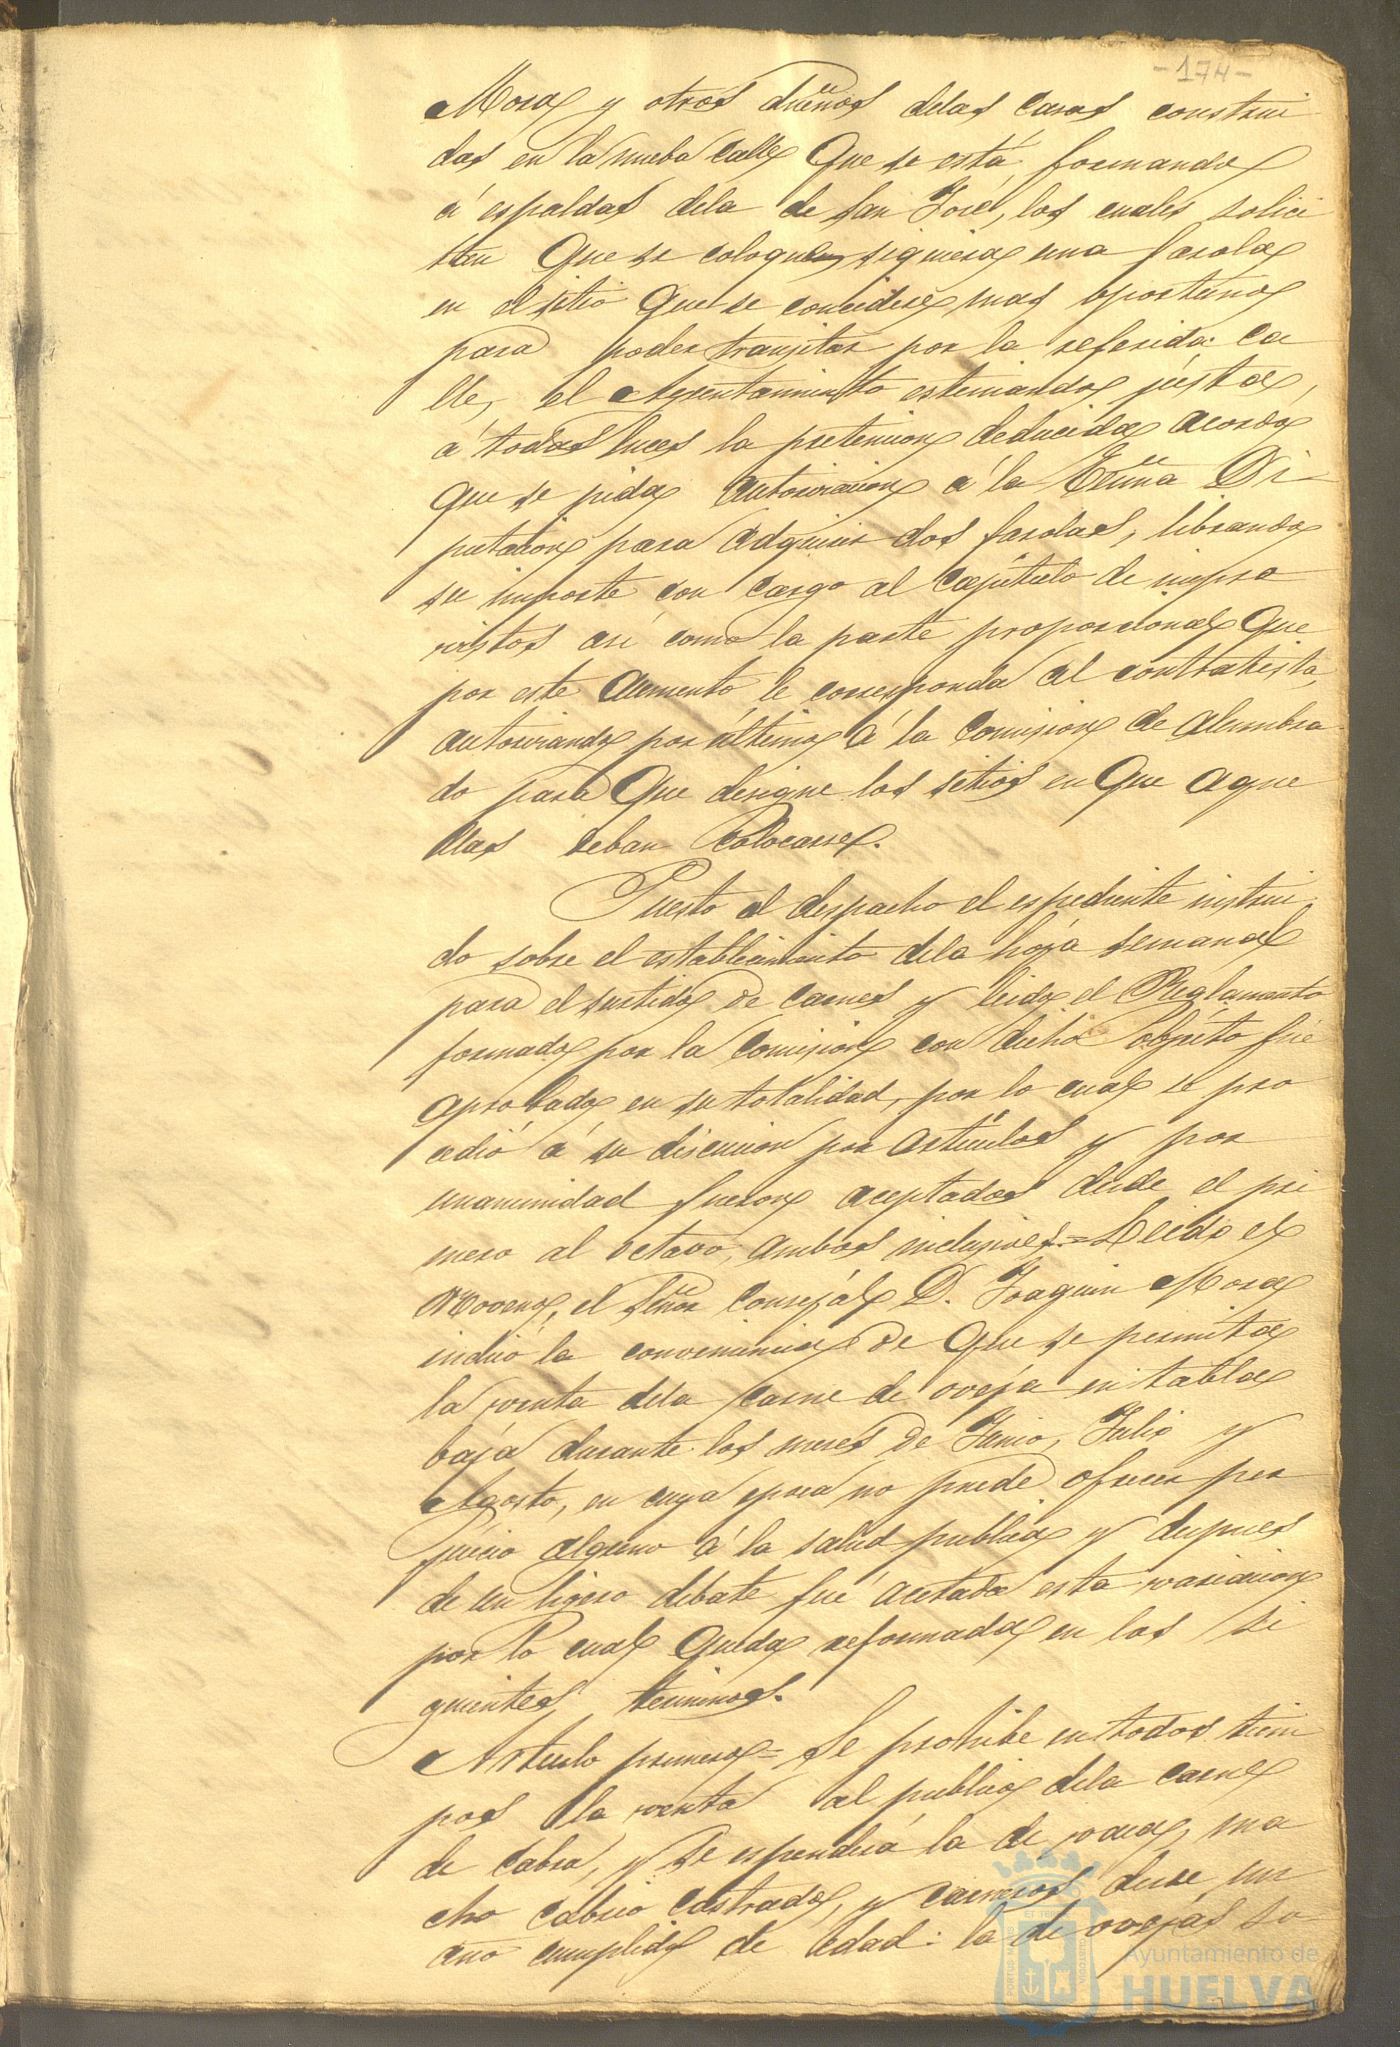 -174-
Mora y otros dueños delas casas construi
das en la nueba calle que se está formando
á espaldas dela de San José, los cuales solici
tan que se coloquen siquiera una farola
en el sitio que se considere mas oportuno
para poder transitar por la referida ca
lle, el Ayuntamiento estimando justa,
á todas luces la pretencion deducida acordó
que se pida autorizacion á la Exma Di-
putacion para adquirir dos farolas, librando
su importe con cargo al Capitulo de impre
vistos asi como la parte proporcional que
por este aumento le corresponda al contratista,
autorizando por último á la Comision de alumbra
do para que designe los sitios en que aque
llas deban colocarse.
Puesto al despacho el espediente instrui
do sobre el establecimiento dela hoja semanal
para el surtido de carnes y leido el Reglamento
formado por la Comision con dicho objeto fué
aprobado en su totalidad, por lo cual se pro
cedió á su discucion por artículos y por
unanimidad fueron aceptados desde el pri
mero al octavo, ambos inclusives.= Leido el
Noveno, el Señor Consejál D. Joaquin Mora
indicó la conveniencia de que se permita
la venta dela carne de oveja en tabla
baja durante los meses de Junio, Julio y
Agosto, en cuya epoca no puede ofrecer per
juicio alguno á la salud publica y despues
de un ligero debate fué acetada esta variacion
por lo cual queda reformado en los si
guientes terminos.
Artículo primero= Se prohibe en todos tiem
pos la venta al publico dela carne
de cabra, y se espenderá la de vaca, ma
cho cabrio castrado, y carneros desde un
año cumplido de edad: la de ovejas so-
Ayuntamiento de
HUELVA